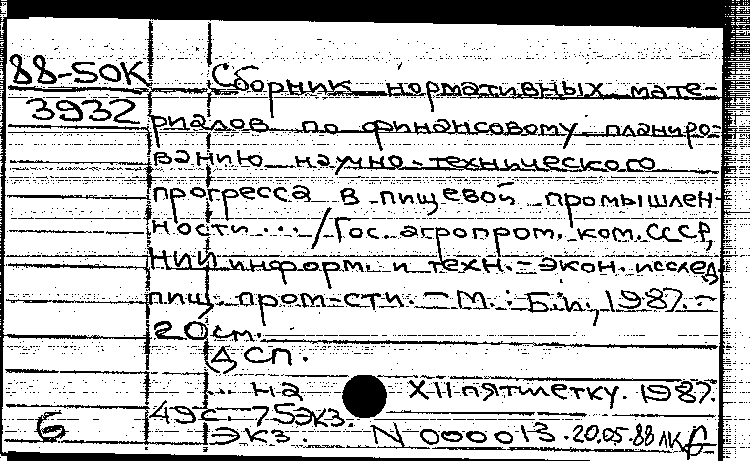 88-50К Сборник нормативных мате-
3932 риалов по финансовому планиро-
ванию научно-технического
прогресса в пищевой промышлен-
ности .../Гос. агропром. ком. СССР,
НИИ информ. и техн.-экон. исслед.
пищ. пром-сти. - М.: Б.и., 1987. -
20 см.
ДСП.
... на XII пятилетку. 1987.
49 с. 75 экз.
6 Экз. N 000013. 20.05.88